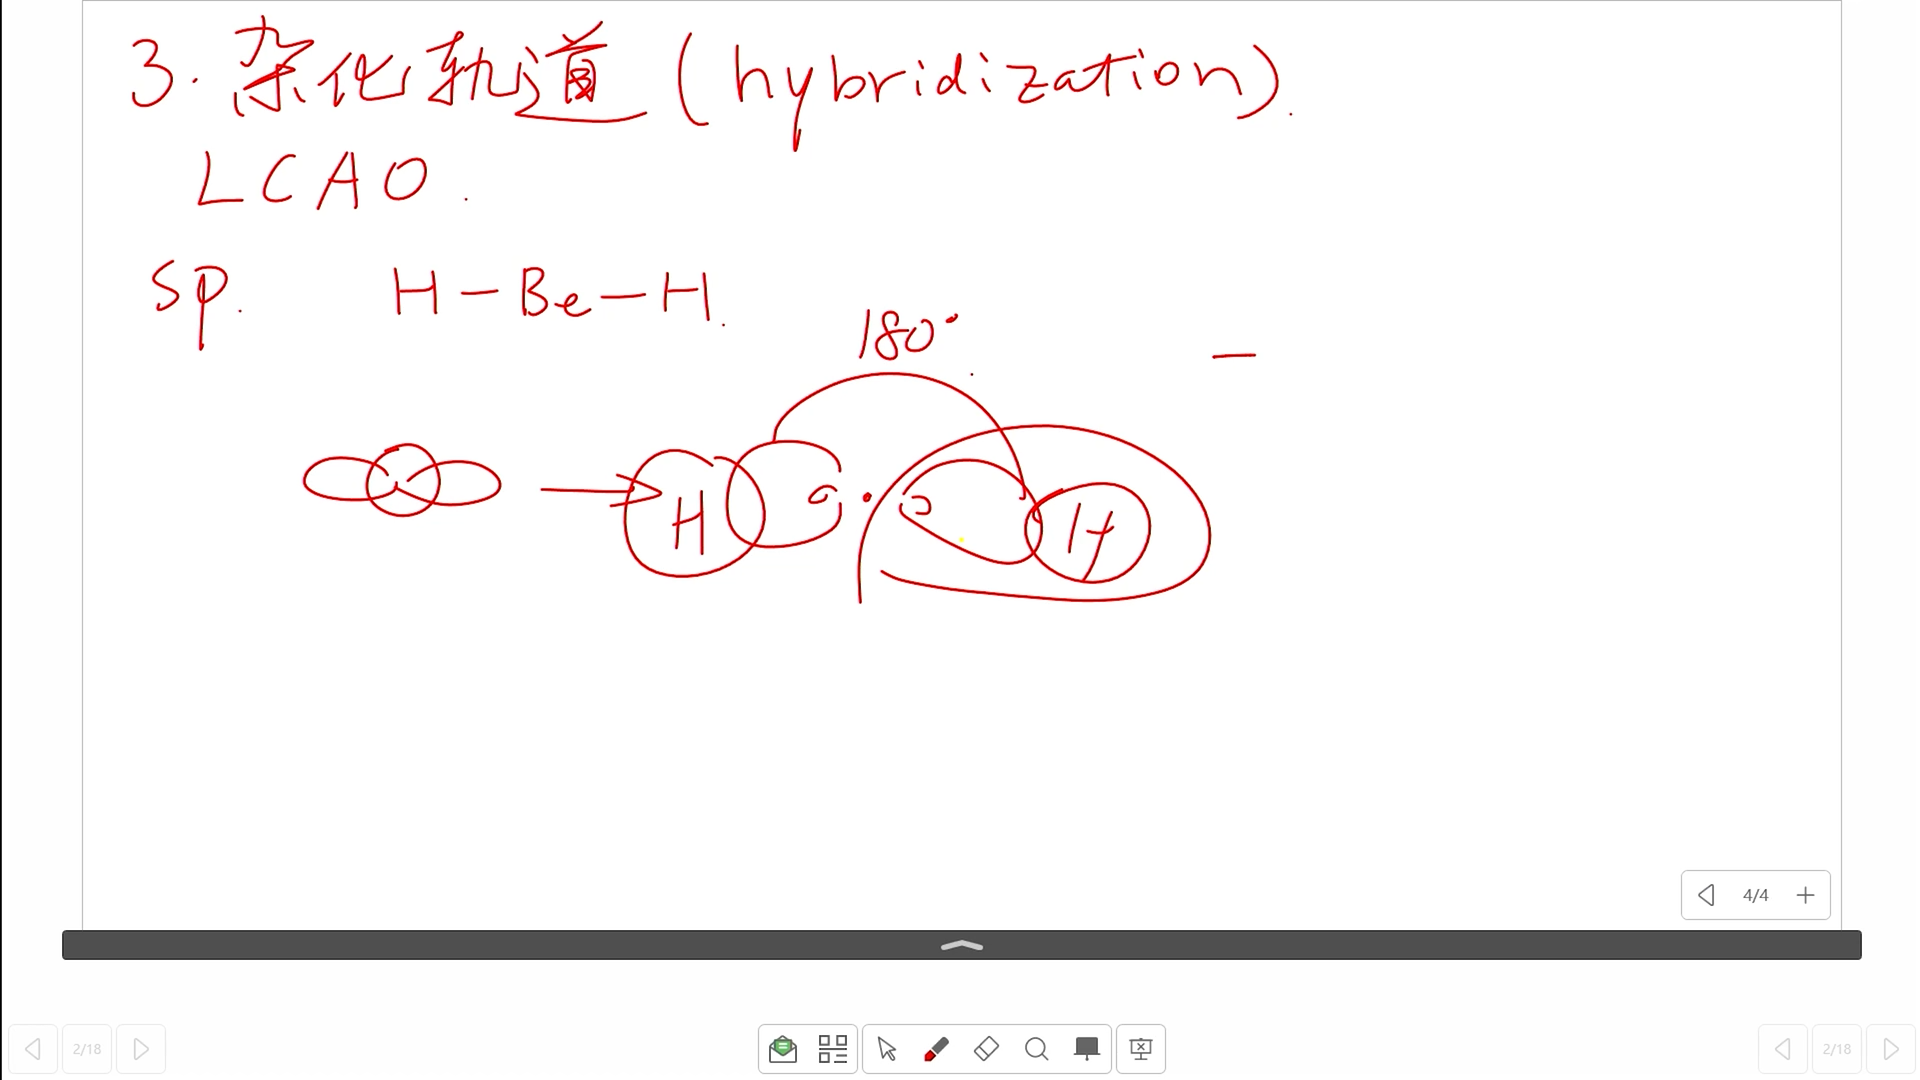 3. 杂化轨道 (hybridization).
LCAO.
sp. H-Be-H.
180°
H H
4/4
2/18 2/18